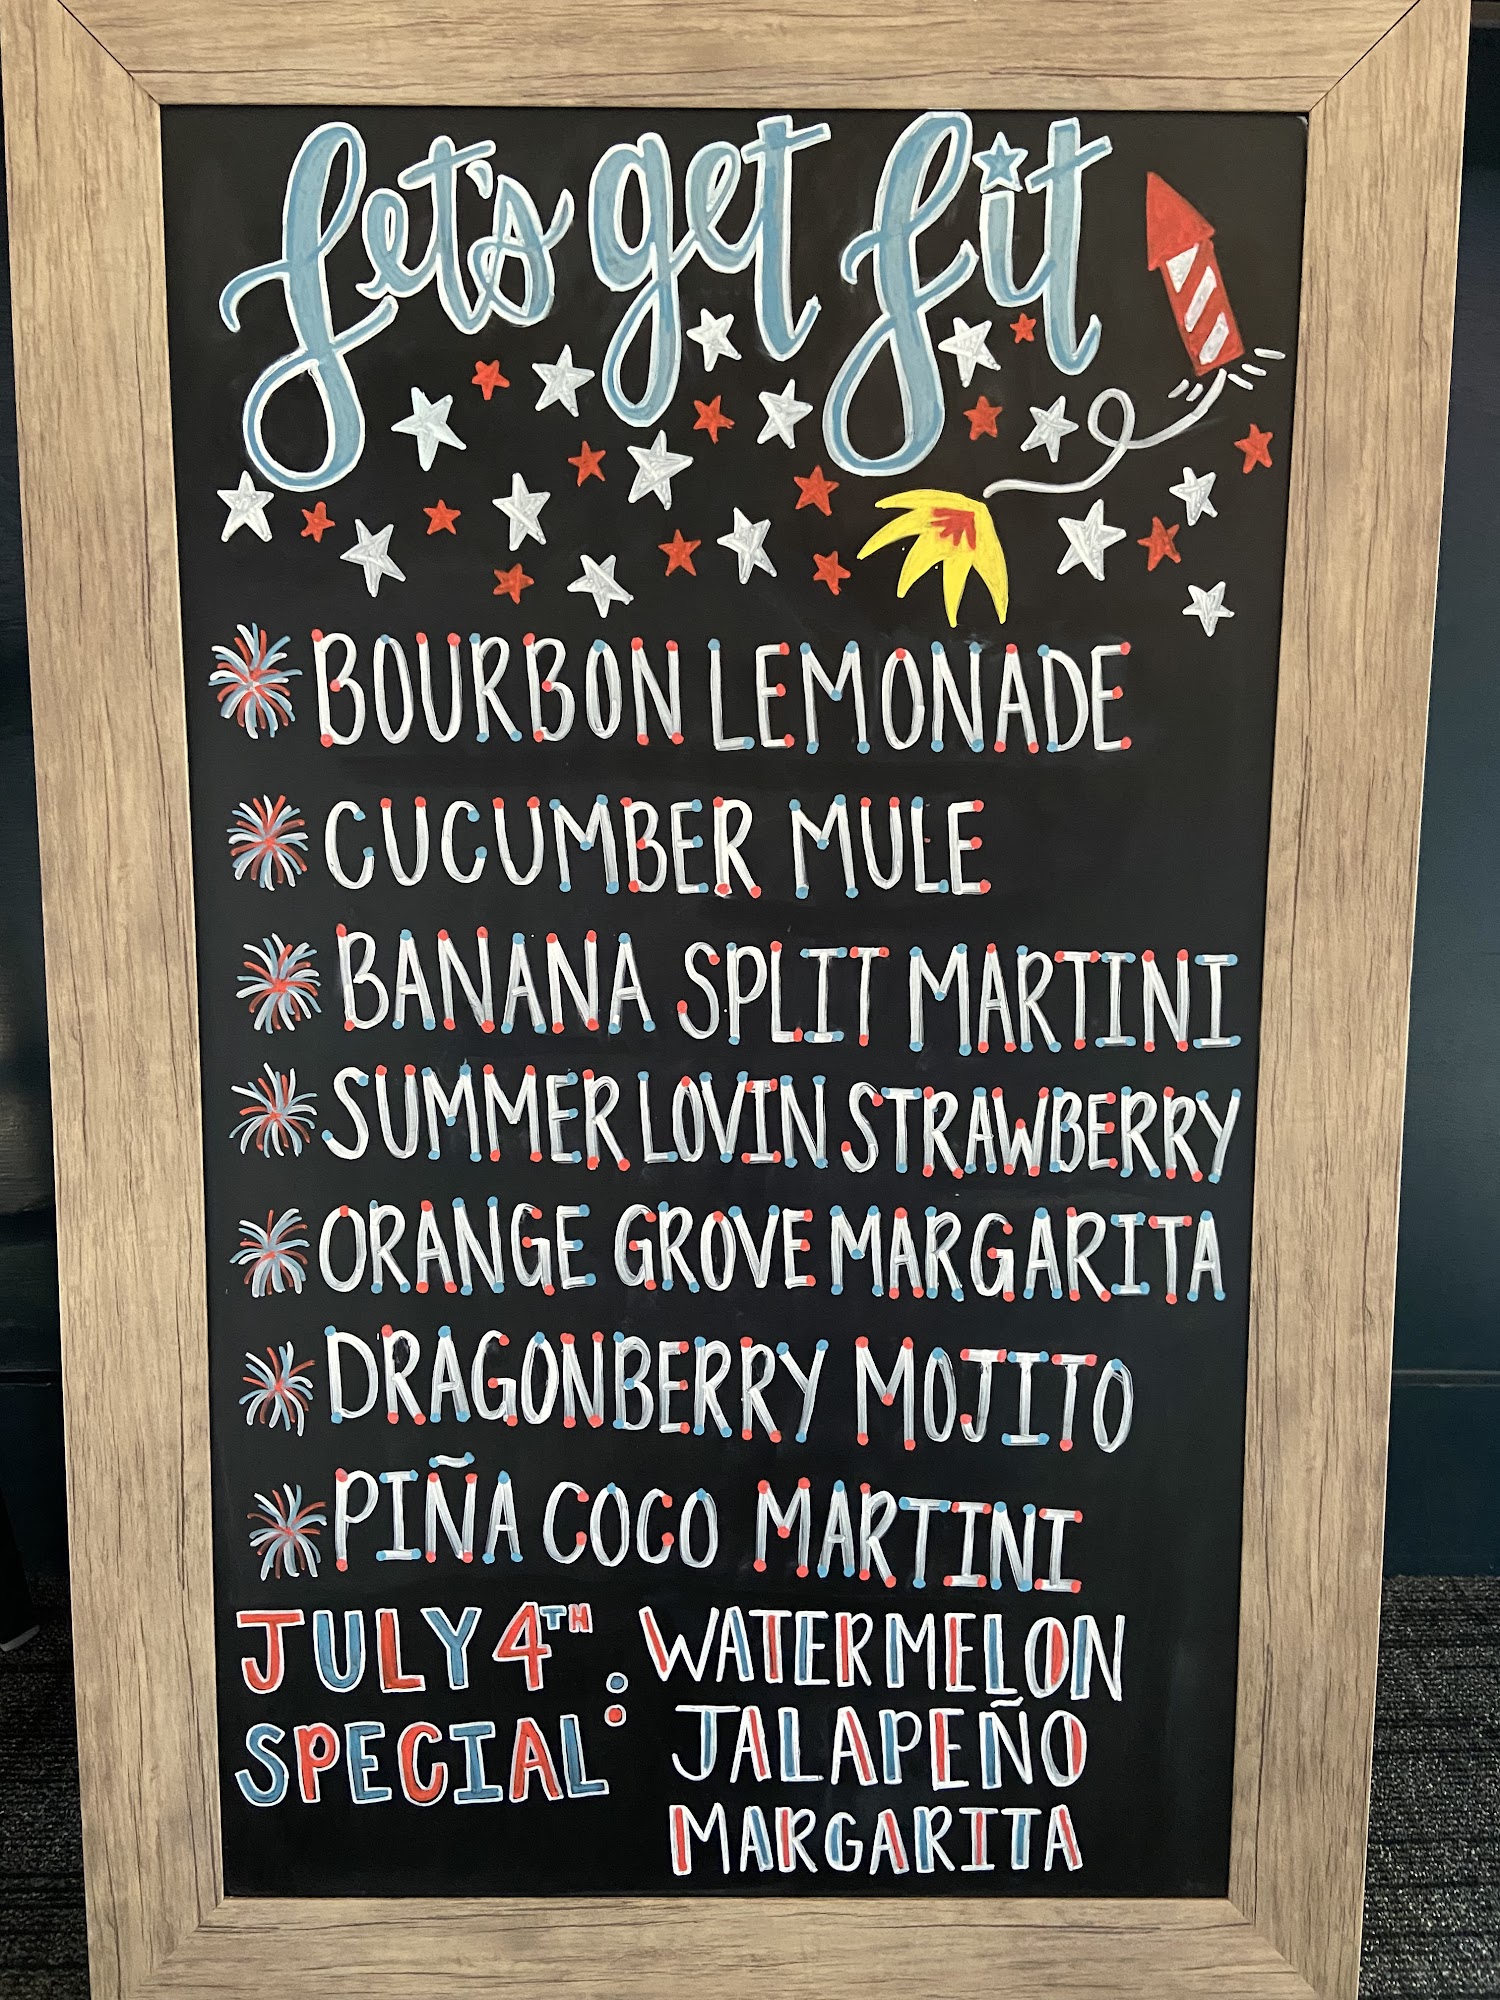 Let's get fit
BOURBON LEMONADE
CUCUMBER MULE
BANANA SPLIT MARTINI
SUMMER LOVIN STRAWBERRY
ORANGE GROVE MARGARITA
DRAGONBERRY MOJITO
PIÑA COCO MARTINI
JULY 4TH SPECIAL: WATERMELON
JALAPEÑO
MARGARITA